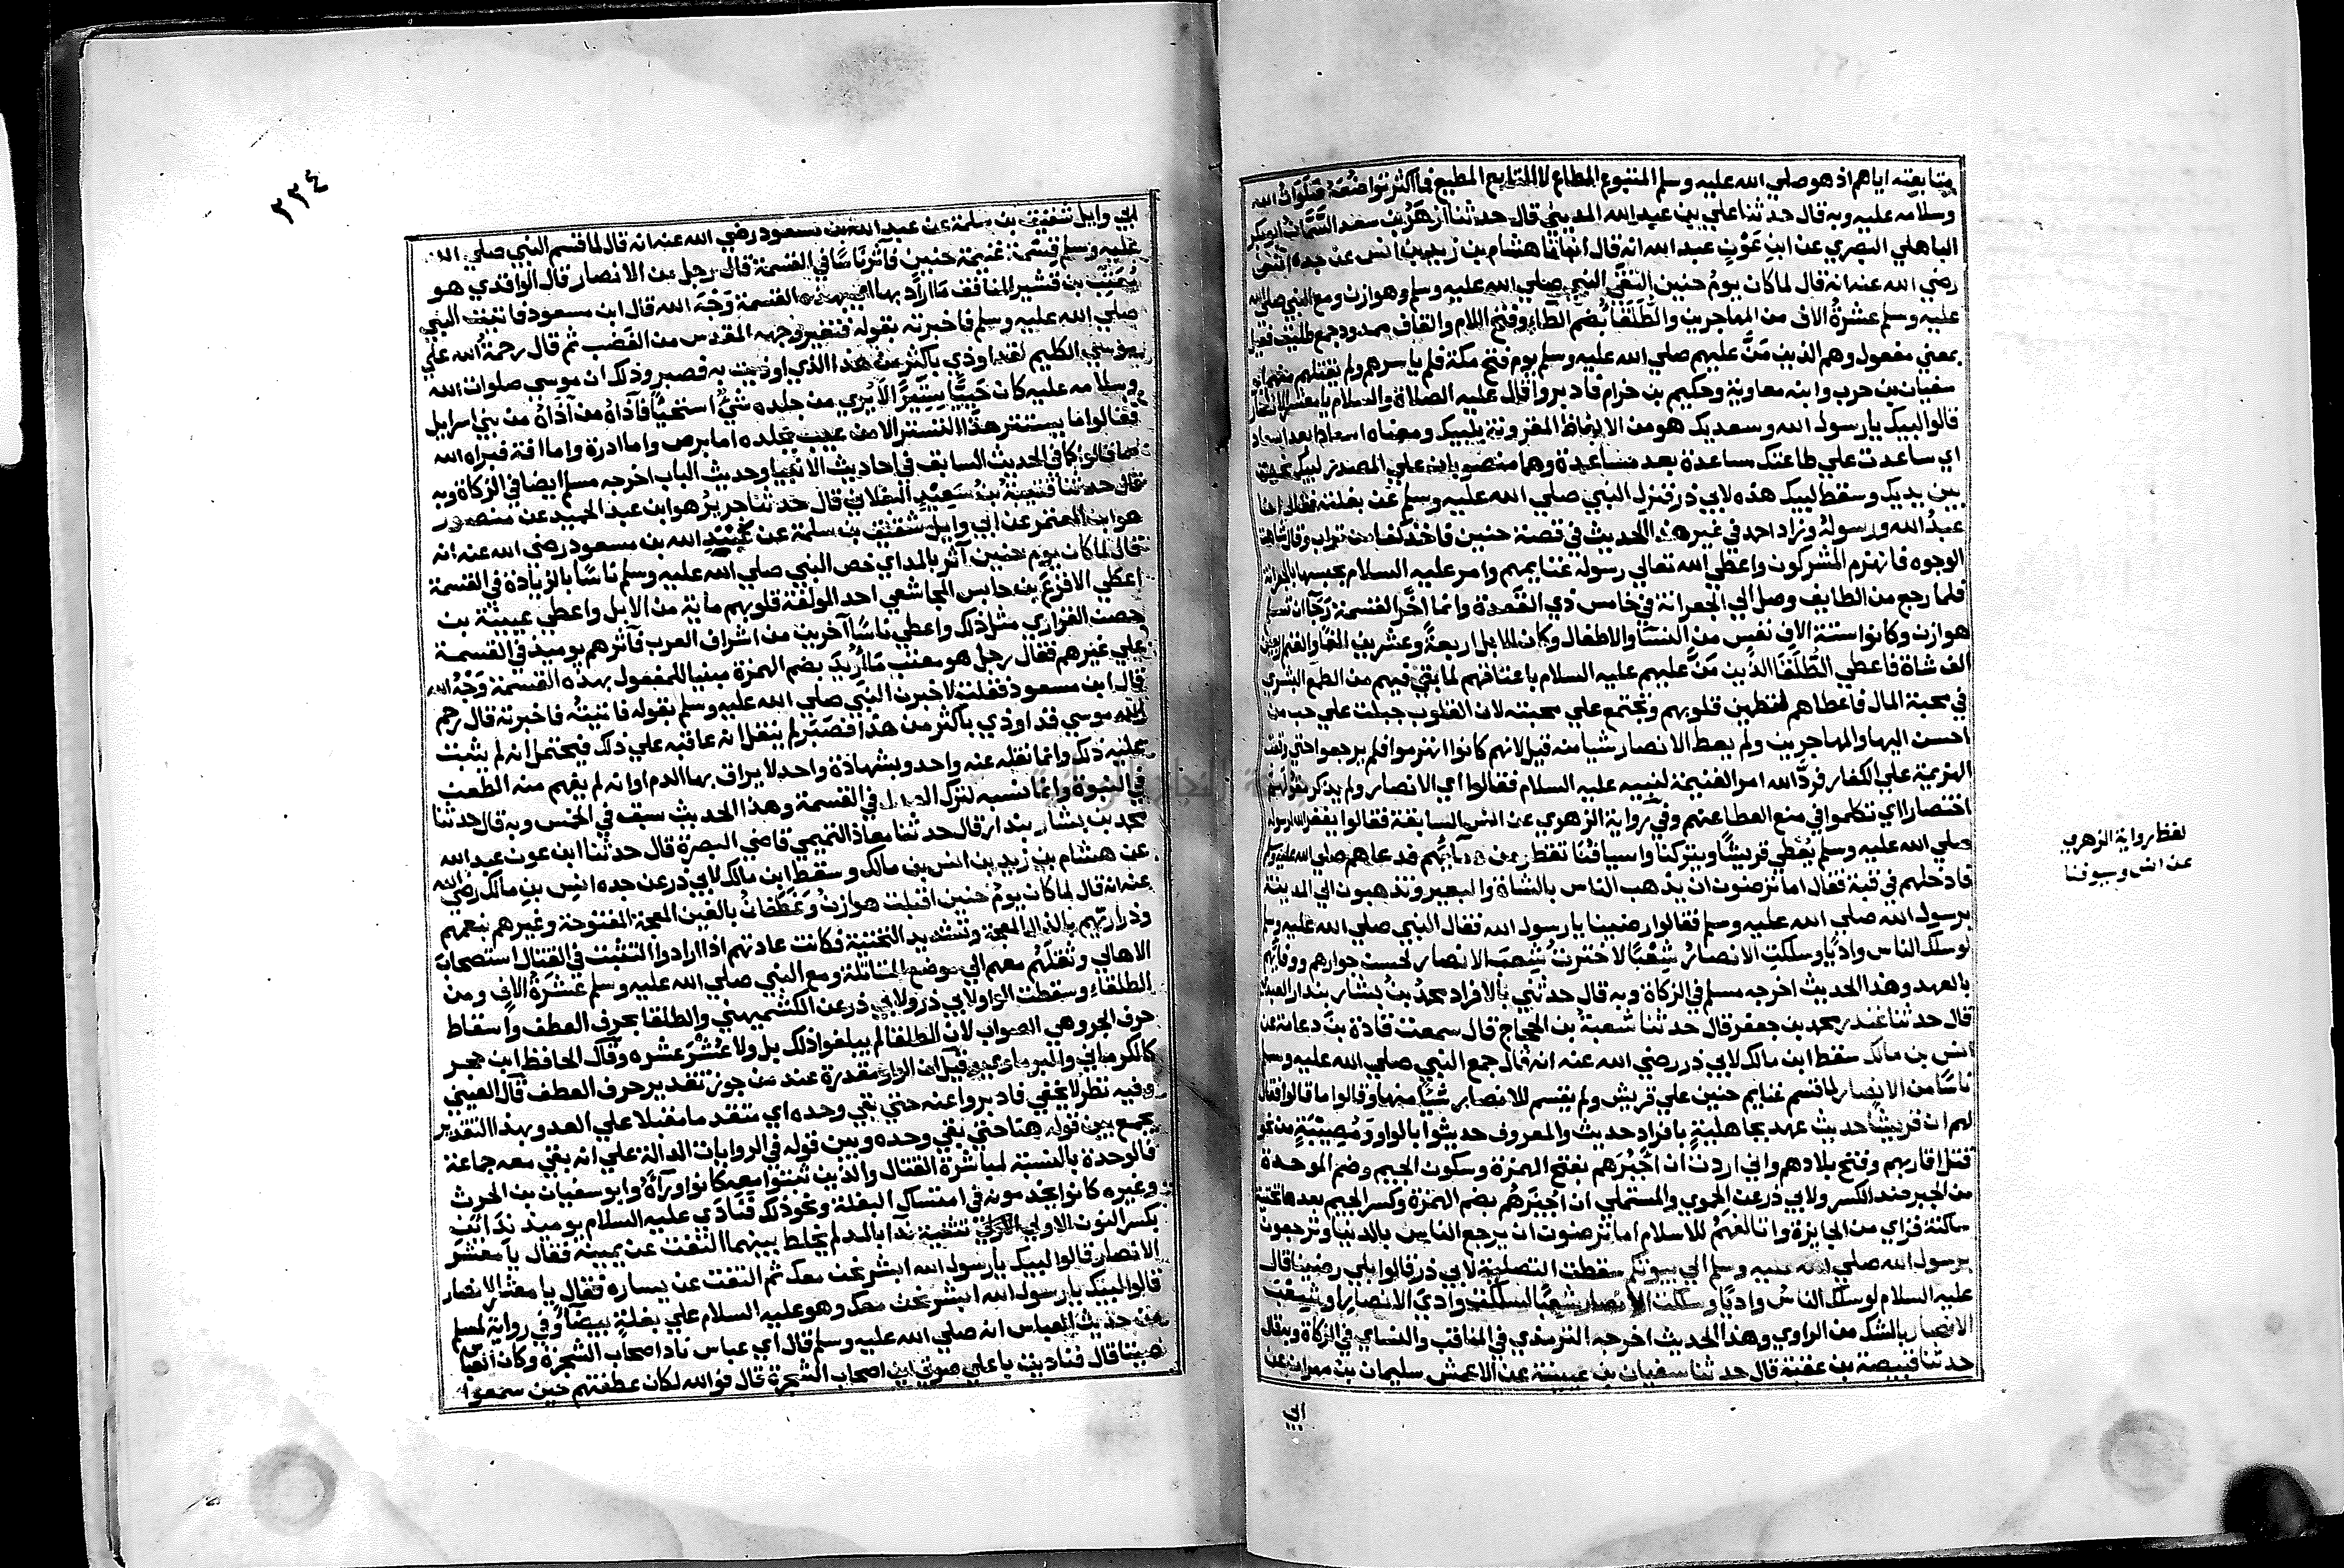 متابعته اياهم اذ هو صلي الله عليه وسلم المتبوع المطاع لا التابع المطيع فما اكثر تواضعه فصلوات الله
وسلامه عليه وبه قال حدثنا علي بن عبد الله المديني قال حدثنا ازهر بن سعد السمان ابو بكر
الباهلي البصري عن ابن عون عبد الله انه قال انبانا هشام بن زيد بن انس عن جده انس
رضي الله عنه انه قال لما كان يوم حنين التقي النبي صلي الله عليه وسلم وهوازن ومع النبي صلي الله
عليه وسلم عشرة الاف من المهاجرين والطلقا بضم الطاء وفتح اللام والقاف ممدود جمع طليق فعيل
بمعني مفعول وهم الذين من عليهم صلي الله عليه وسلم يوم فتح مكة فلم ياسرهم ولم يقتلهم منهم ابو
سفيان بن حرب وابنه معاوية وحكيم بن حزام فادبروا قال عليه الصلاة والسلام يا معشر الانصار
قالوا لبيك يا رسول الله وسعديك هو من الالفاظ المقرونة بلبيك ومعناه اسعادا بعد اسعاد
اي ساعدت علي طاعتك مساعدة بعد مساعدة وهما منصوبان علي المصدر لبيك نحن
بين يديك وسقط لبيك هذه لابي ذر فنزل النبي صلي الله عليه وسلم عن بغلته فقال انا
عبد الله ورسوله وزاد احد في غير هذا الحديث في قصة حنين فاخذ كفا من تراب وقال شاهت
الوجوه فانهزم المشركون واعطي الله تعالي رسوله غنايمهم وامر عليه السلام بحبسها بالجعرانة
فلما رجع من الطايف وصل الي الجعرانة في خامس ذي القعدة وانما اخر القسمة رجا ان تسلم
هوازن وكانوا ستة الاف نفس من النسا والاطفال وكان الابل اربعة وعشرين الفا والغنم اربعين
الف شاة فاعطي الطلقا الذين من عليهم عليه السلام باعتاقهم لما بقي فيهم من الطمع البشري
في محبة المال فاعطاهم لتطمين قلوبهم وتجتمع علي محبته لان القلوب جبلت علي حب من
احسن اليها والمهاجرين ولم يعط الانصار شيا منه قيل لانهم كانوا انهزموا فلم يرجعوا حتي وقعت
الهزيمة علي الكفار فرد الله امر الغنيمة لنبيه عليه السلام فقالوا اي الانصار ولم يذكر مقولهم
اختصارا اي تكلموا في منع العطا عنهم وفي رواية الزهري عن انس السابقة فقالوا يغفر الله لرسوله
صلي الله عليه وسلم يعطي قريشا ويتركنا واسيافنا تقطر من دمايهم فدعاهم صلي الله عليه وسلم
فادخلهم في قبة فقال اما ترضون ان يذهب الناس بالشاة والبعير وتذهبون الي المدينة
برسول الله صلي الله عليه وسلم فقالوا رضينا يا رسول الله فقال النبي صلي الله عليه وسلم
لو سلك الناس واديا وسلكت الانصار شعبا لاخترت شعب الانصار لحسن جوارهم ووفايهم
بالعهد وهذا الحديث اخرجه مسلم في الزكاة وبه قال حدثني بالافراد محمد بن بشار بندار العبدي
قال حدثنا غندر محمد بن جعفر قال حدثنا شعبة بن الحجاج قال سمعت قتادة بن دعامة عن
انس بن مالك سقط ابن مالك لابي ذر رضي الله عنه انه قال جمع النبي صلي الله عليه وسلم
ناسا من الانصار لما قسم غنايم حنين علي قريش ولم يقسم للانصار شيا منها وقالوا ما قالوا فقال
لهم ان قريشا حديث عهد بجاهلية بافراد حديث والمعروف حديثوا بالواو ومصيبة من نحو
قتل اقاربهم وفتح بلادهم واني اردت ان اجبرهم بفتح الهمزة وسكون الجيم وضم الموحدة
من الجبر ضد الكسر ولابي ذر عن الحموي والمستملي ان اجيزهم بضم الهمزة وكسر الجيم بعدها تحتية
ساكنة فزاي من الجايزة واتالفهم للاسلام اما ترضون ان يرجع الناس بالدنيا وترجعون
برسول الله صلي الله عليه وسلم الي بيوتكم سقطت التصلية لابي ذر قالوا بلي رضينا قال
عليه السلام لو سلك الناس واديا وسلكت الانصار شعبا لسلكت وادي الانصار او شعب
الانصار بالشك من الراوي وهذا الحديث اخرجه الترمذي في المناقب والنساي في الزكاة وبه قال
حدثنا قبيصة بن عقبة قال حدثنا سفيان بن عيينة عن الاعمش سليمان بن مهران عن
ابي
لفظ رواية الزهري
عن انس وسيوفنا
٢٢٤
ابي وايل شقيق بن سلمة عن عبد الله بن مسعود رضي الله عنه انه قال لما قسم النبي صلي الله
عليه وسلم قسمة غنيمة حنين فآثر ناسا في القسمة قال رجل من الانصار قال الواقدي هو
معتب بن قشير المنافق ما اراد بها اي بهذه القسمة وجه الله قال ابن مسعود فاتيت النبي
صلي الله عليه وسلم فاخبرته بقوله فتغير وجهه المقدس من الغضب ثم قال رحمة الله علي
موسي الكليم لقد اوذي باكثر من هذا الذي اوذيت به فصبر وذلك ان موسي صلوات الله
وسلامه عليه كان حييا ستيرا لا يري من جلده شي استحيا فآذاه من آذاه من بني اسرايل
فقالوا ما يستتر هذا التستر الا من عيب بجلده اما برص واما ادرة واما افة فبراه الله
مما قالوا كما في الحديث السابق في احاديث الانبيا وحديث الباب اخرجه مسلم ايضا في الزكاة وبه
قال حدثنا قتيبة بن سعيد البغلاني قال حدثنا جرير هو ابن عبد الحميد عن منصور
هو ابن المعتمر عن ابي وايل شقيق بن سلمة عن عبد الله بن مسعود رضي الله عنه انه
قال لما كان يوم حنين آثر بالمد اي خص النبي صلي الله عليه وسلم ناسا بالزيادة في القسمة
اعطي الاقرع بن حابس المجاشعي احد المولفة قلوبهم ماية من الابل واعطي عيينة بن
حصن الفزاري مثل ذلك واعطي ناسا آخرين من اشراف العرب فآثرهم يوميذ في القسمة
علي غيرهم فقال رجل هو معتب ما اريد بضم الهمزة مبنيا للمفعول بهذه القسمة وجه الله
قال ابن مسعود فقلت لاخبرن النبي صلي الله عليه وسلم بقوله فاتيته فاخبرته قال رحم
الله موسي قد اوذي باكثر من هذا فصبر لم ينقل انه عاقبه علي ذلك فيحتمل انه لم يثبت
عليه ذلك وانما نقله عنه واحد وبشهادة واحد لا يراق بها الدم او انه لم يفهم منه الطعن
في النبوة وانما نسبه لترك العدل في القسمة وهذا الحديث سبق في الخمس وبه قال حدثنا
محمد بن بشار بندار قال حدثنا معاذ التميمي قاضي البصرة قال حدثنا ابن عون عبد الله
عن هشام بن زيد بن انس بن مالك وسقط ابن مالك لابي ذر عن جده انس بن مالك رضي الله
عنه انه قال لما كان يوم حنين اقبلت هوازن وغطفان بالغين المعجمة المفتوحة وغيرهم بنعمهم
وذراريهم بالذال المعجمة وتشديد التحتية فكانت عادتهم اذا ارادوا التثبت في القتال استصحاب
الاهالي وثقلهم معهم الي موضع المقاتلة ومع النبي صلي الله عليه وسلم عشرة الاف ومن
الطلقاء وسقطت الواو لابي ذر ولابي ذر عن الكشميهني والطلقا بحرف العطف واسقاط
حرف الجر وهي الصواب لان الطلقا لم يبلغوا ذلك بل ولا عشر عشره وقال الحافظ ابن حجر
كالكرماني والبرماوي وقيل ان الواو مقدرة عند من جوز تقدير حرف العطف قال العيني
وفيه نظر لا يخفي فادبروا عنه حتي بقي وحده اي متقدما مقبلا علي العدو وبهذا التقدير
يجمع بين قوله هنا حتي بقي وحده وبين قوله في الروايات الدالة علي انه بقي معه جماعة
فالوحدة بالنسبة لمباشرة القتال والذين ثبتوا معه كانوا ورآه وابو سفيان بن الحرث
وغيره كانوا يخدمونه في امتساك البغلة ونحو ذلك فنادي عليه السلام يوميذ ندائين
بكسر النون الاولي تثنية ندا بالمد لم يخلط بينهما التفت عن يمينه فقال يا معشر
الانصار قالوا لبيك يا رسول الله ابشر نحن معك ثم التفت عن يساره فقال يا معشر الانصار
قالوا لبيك يا رسول الله ابشر نحن معك وهو عليه السلام علي بغلة بيضا وفي رواية لمسلم
من حديث العباس انه صلي الله عليه وسلم قال اي عباس ناد اصحاب الشجرة وكان العباس
صيتا قال فناديت باعلي صوتي اين اصحاب الشجرة قال فوالله لكان عطفتهم حين سمعوا